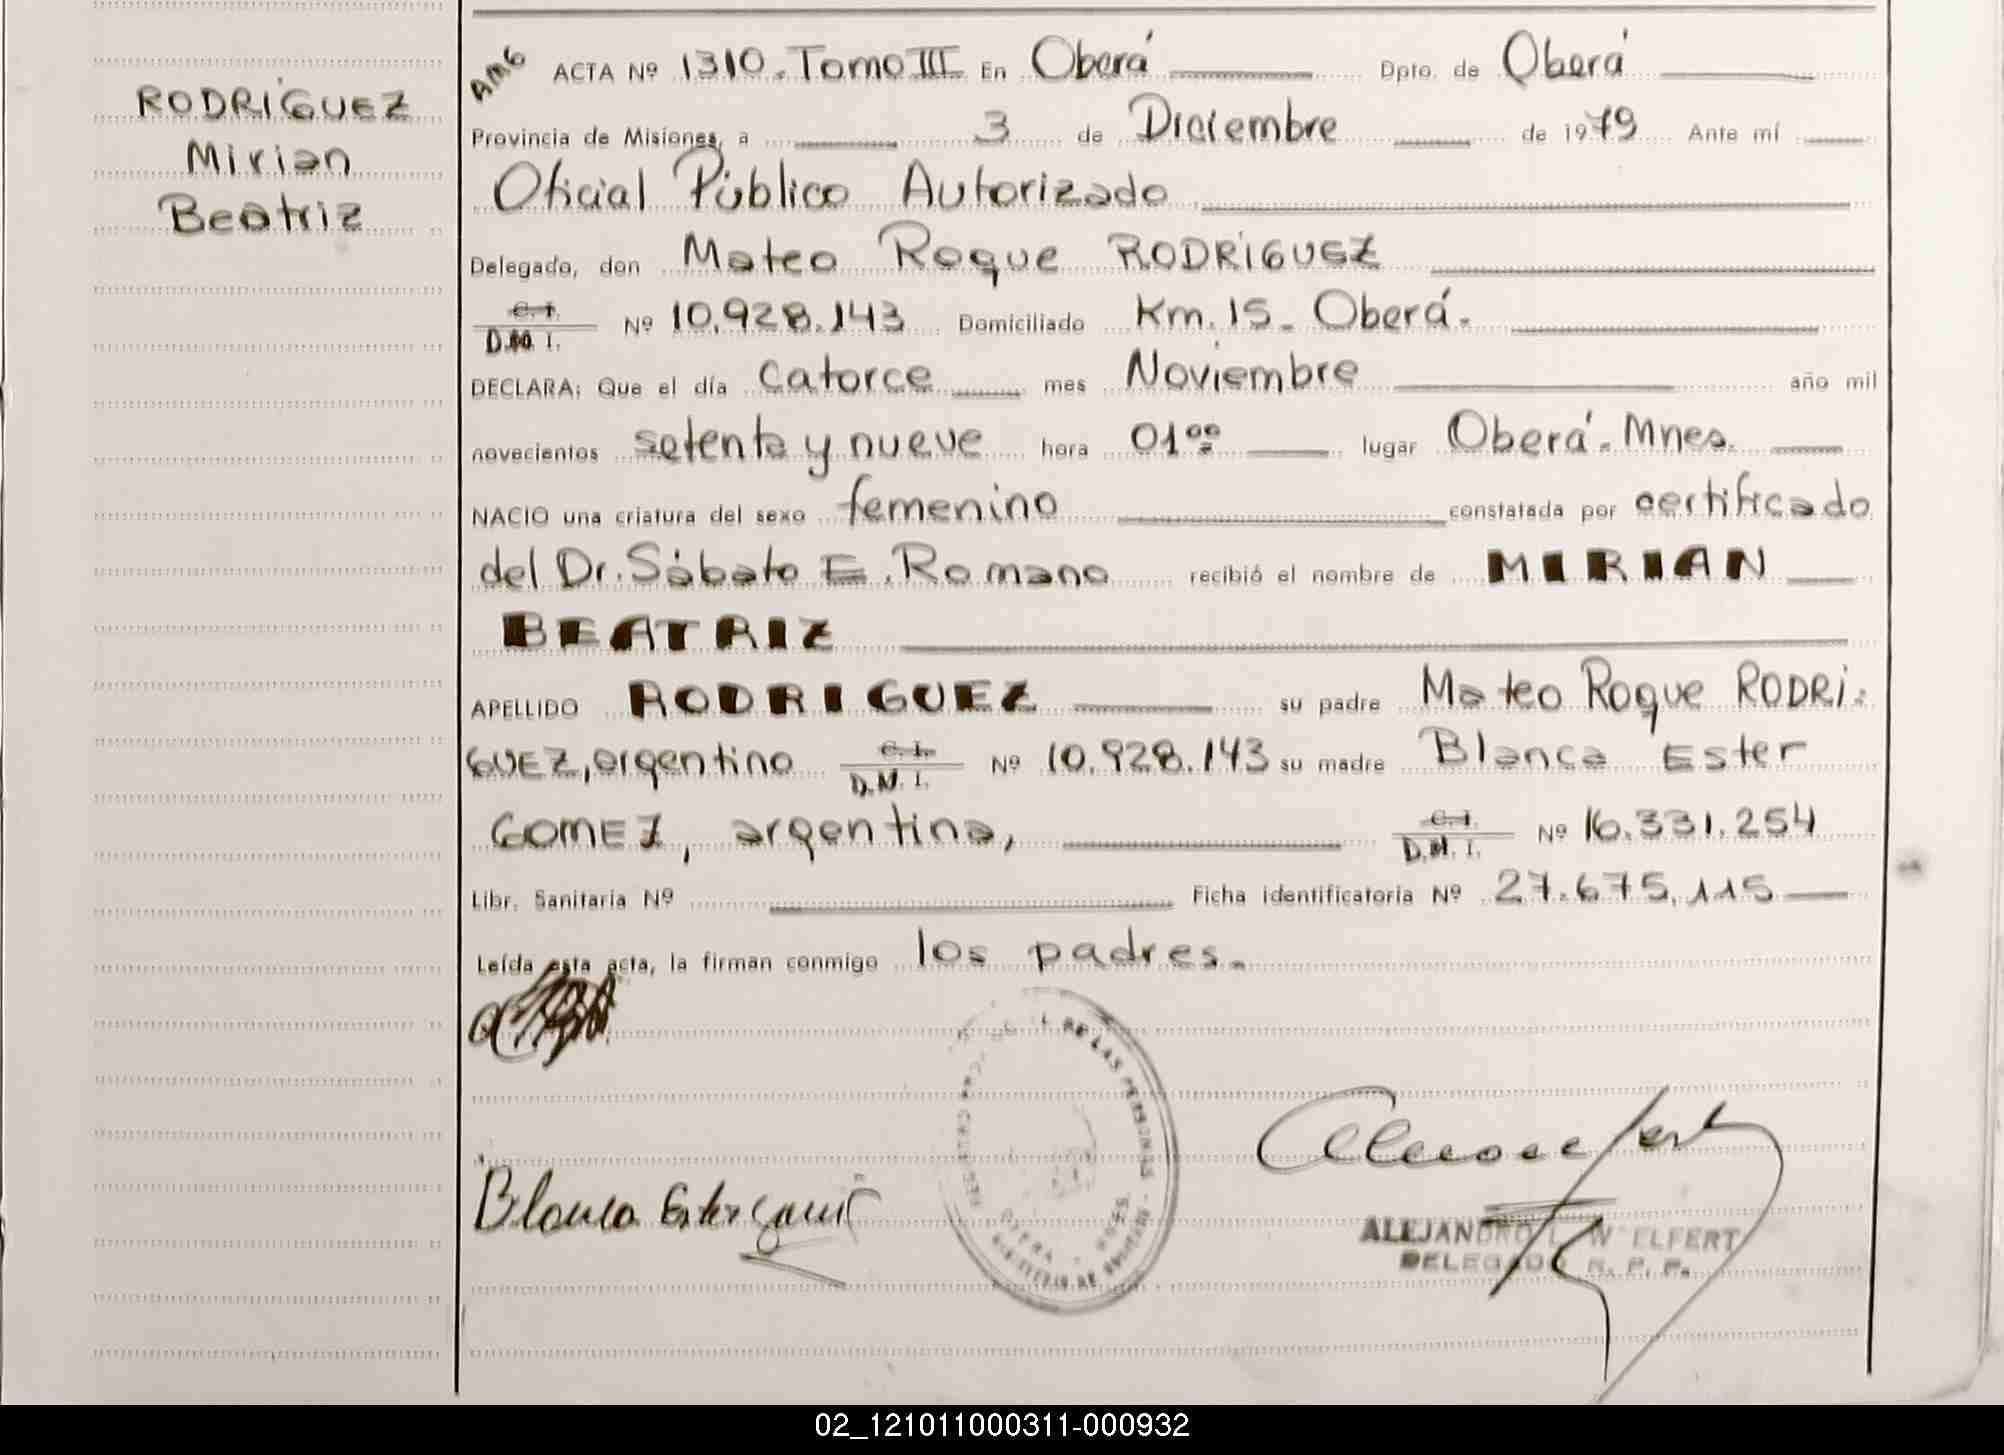 RODRÍGUEZ
Mirian
Beatriz
AMG ACTA Nº 1310. Tomo III En Oberá Dpto. de Oberá
Provincia de Misiones, a 3 de Diciembre de 1979 Ante mí
Oficial Público Autorizado
Delegado, don Mateo Roque RODRÍGUEZ
C. I. D.N. I. Nº 10.928.143 Domiciliado Km. 15. Oberá.
DECLARA: Que el día Catorce mes Noviembre año mil
novecientos setenta y nueve hora 01⁰⁰ lugar Oberá. Mnes.
NACIO una criatura del sexo femenino constatada por certificado
del Dr. Sábato E. Romano recibió el nombre de MIRIAN
BEATRIZ
APELLIDO RODRIGUEZ su padre Mateo Roque RODRÍ-
GUEZ, argentino C. I. D.N. I. Nº 10.928.143 su madre Blanca Ester
GOMEZ, argentina, C. I. D.N. I. Nº 16.331.254
Libr. Sanitaria Nº Ficha identificatoria Nº 27.675.115
Leída esta acta, la firman conmigo los padres.
DE LAS PERSONAS
Blanca Ester
ALEJANDRO L. W ELFERT
DELEGADO R. P. P.
02_121011000311-000932